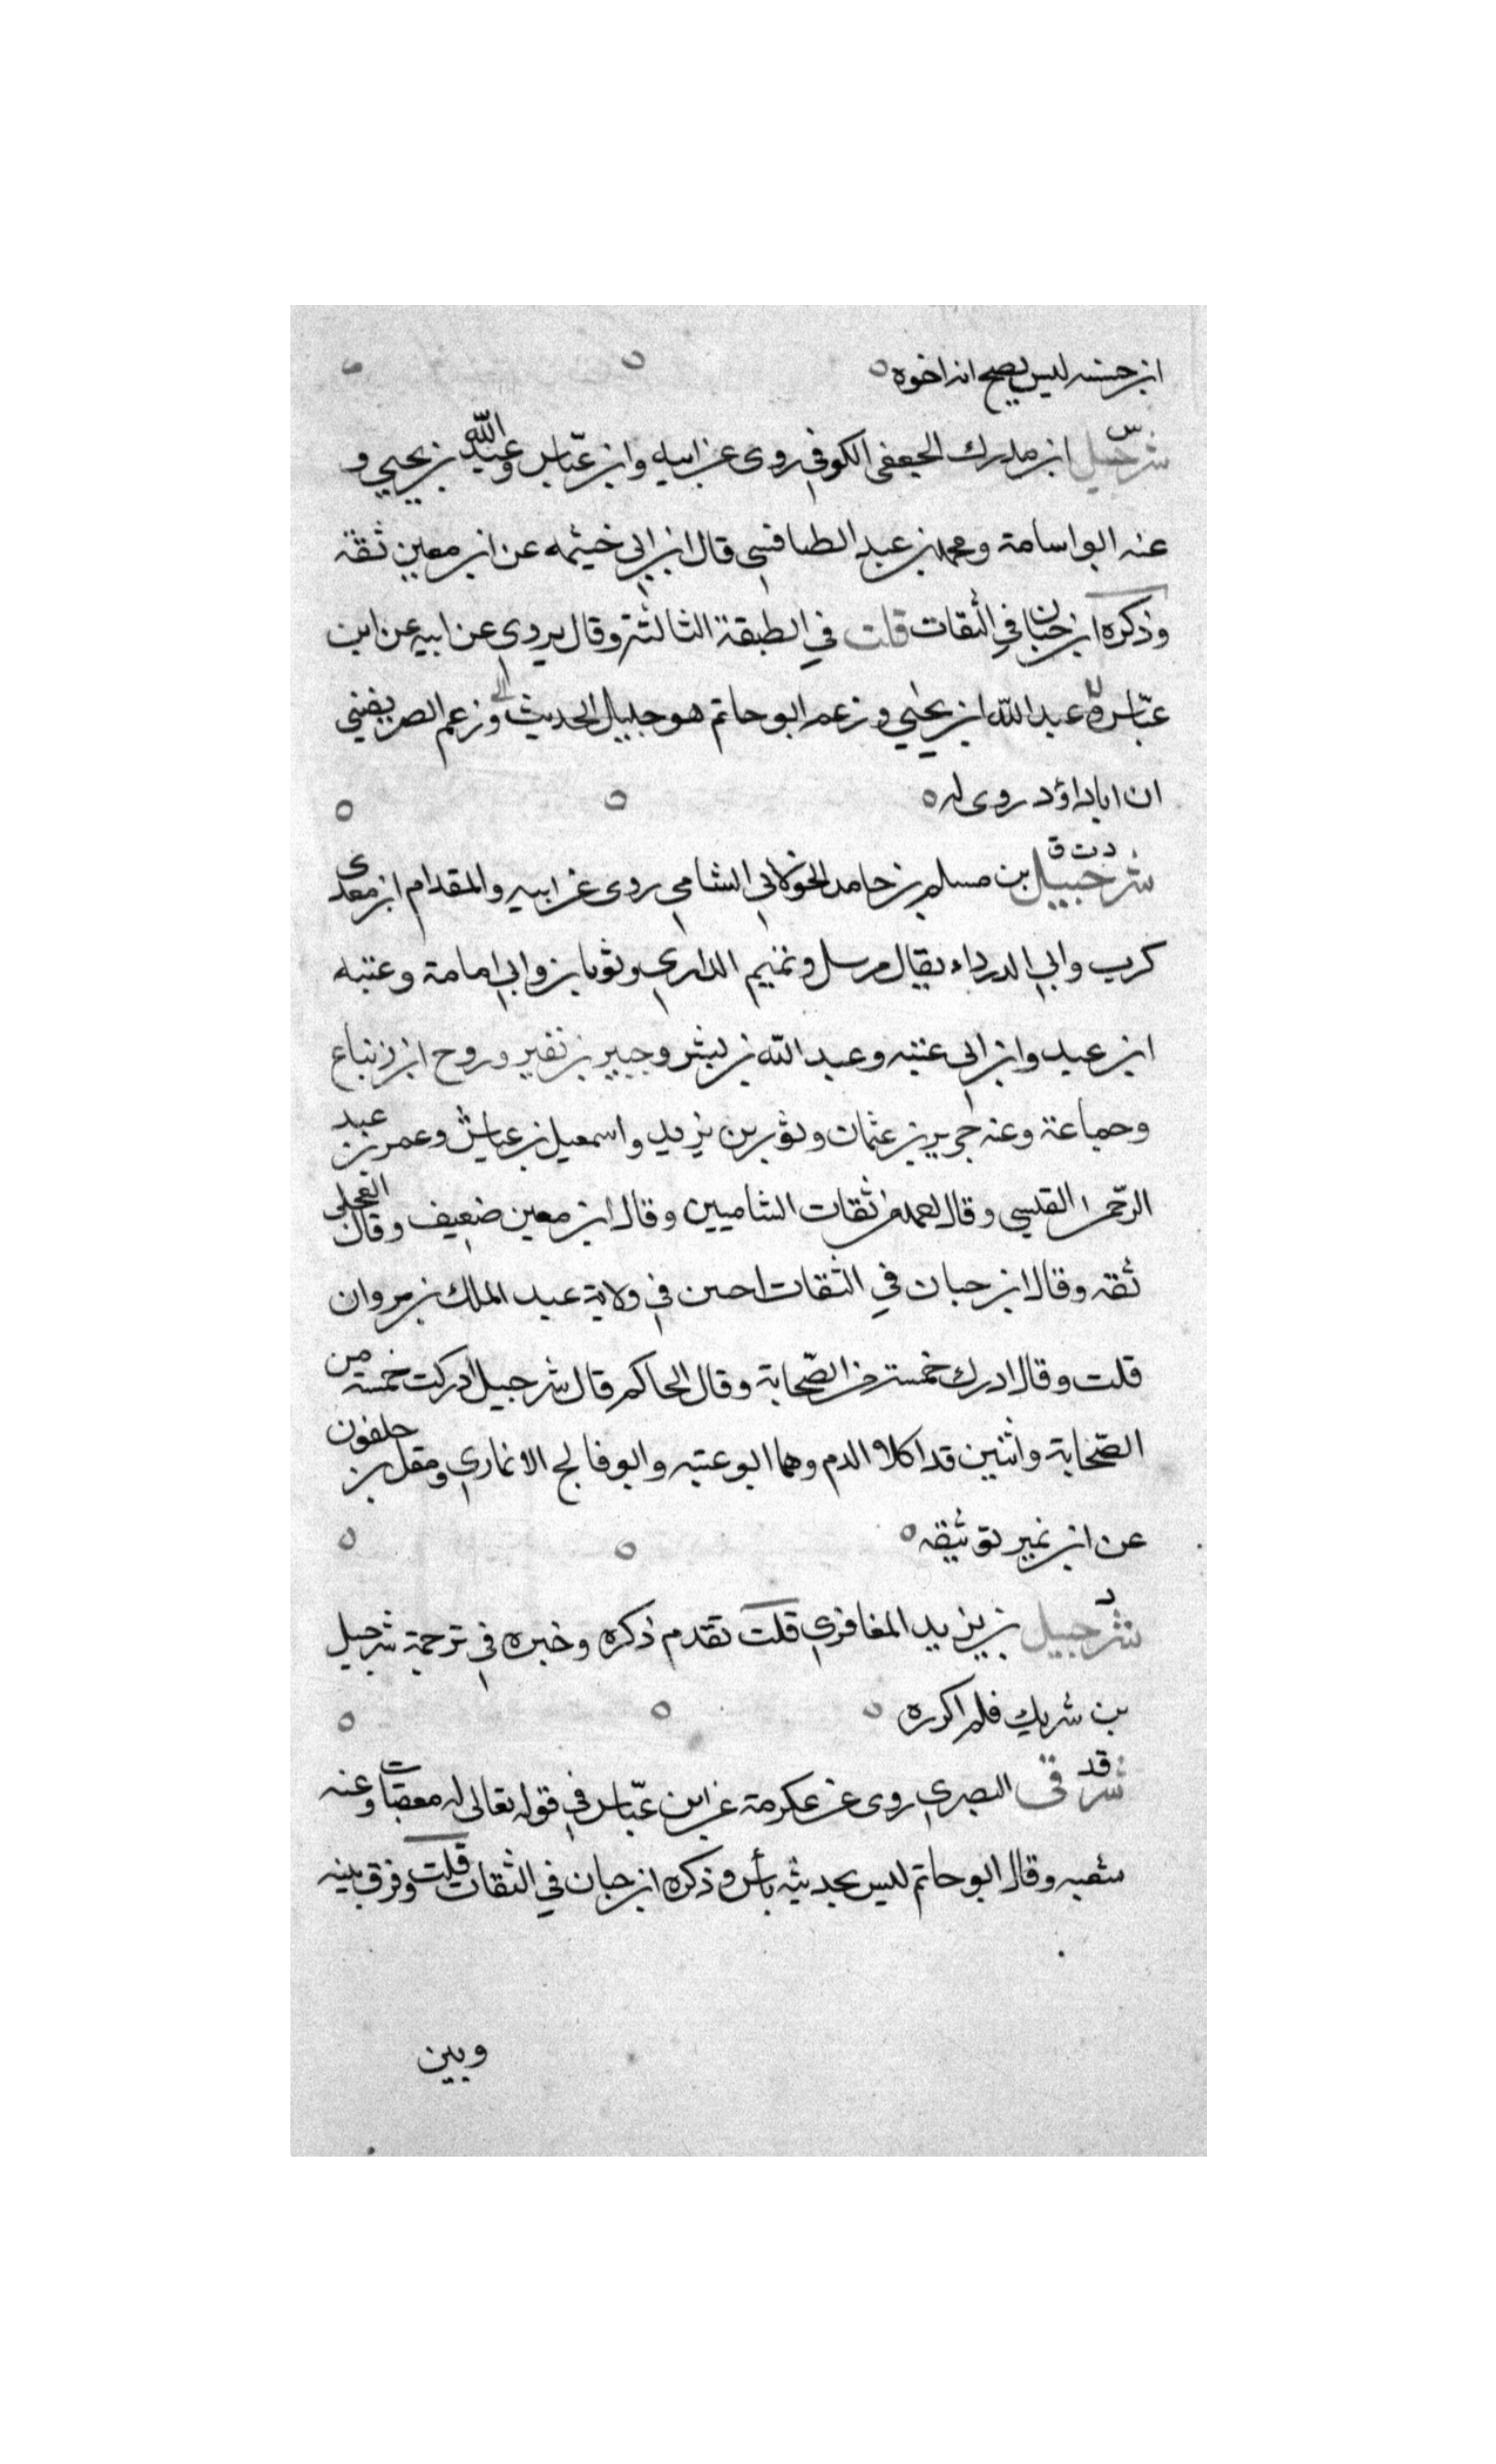 ابن حسنه ليس يصح انه اخوه
س
شرحبيل ابن مدرك الجعفى الكوفي روى عن ابيه وابن عباس وعبد الله بن يحيي و
عنه ابو اسامة ومحمد بن عبيد الطنافسي قال ابن ابي خيثمه عن ابن معين ثقة
وذكره ابن حبان في الثقات قلت في الطبقة الثالثة وقال يروي عن ابيه عن ابن
عباس عبد الله ابن يحيي وزعم ابو حاتم هو جليل الحديث وزعم الصريفيني
ان ابا داؤد روى له
د ت ق
شرحبيل بن مسلم بن حامد الخولاني الشامي روى عن ابيه والمقدام ابن معدى
كرب وابي الدرداء يقال مرسل وتميم الداري وثوبان وابي امامة وعتبه
ابن عبد وابن ابي عنبه وعبد الله بن بشر وجبير بن نفير وروح ابن زنباع
وجماعة وعنه جرير بن عثمان وثور بن يزيد واسمعيل بن عياش وعمر بن عبد
الرحمن القيسي وقال احمد من ثقات الشاميين وقال ابن معين ضعيف وقال العجلي
ثقه وقال ابن حبان في الثقات احسن في ولاية عبد الملك بن مروان
قلت وقال ادرك خمسة من الصحابة وقال الحاكم قال شرحبيل ادركت خمسة من
الصحابة واثنين قد اكلا الدم وهما ابو عتبه وابو فالج الانماري ومقل بن خلفون
عن ابن نمير توثيقه
د
شرحبيل بن يزيد المغافري قلت تقدم ذكره وخبره في ترجمة شرحبيل
بن شريك فلم اكرره
قد
شرقى البصري روى عن عكرمة عن ابن عباس في قوله تعالى له معقبات وعنه
شعبه وقال ابو حاتم ليس بحديثه بأس وذكره ابن حبان في الثقات قلت وفرق بينه
وبين